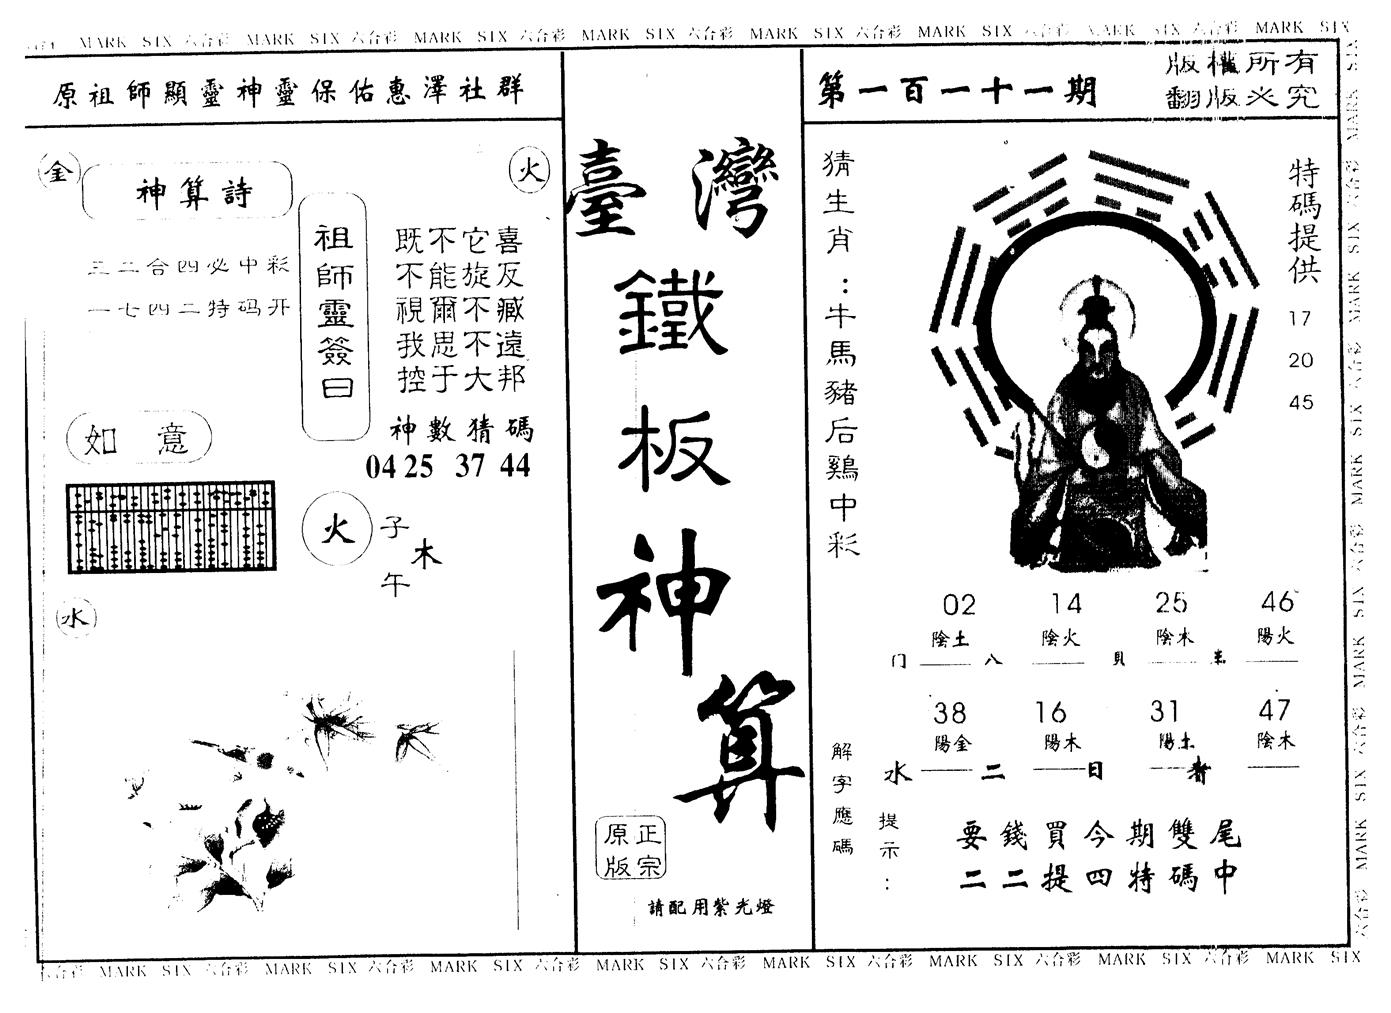 MARK SIX 六合彩 MARK SIX 六合彩 MARK SIX 六合彩 MARK SIX 六合彩 MARK SIX 六合彩 MARK SIX 六合彩 MARK SIX 六合彩 MARK SIX
原祖師顯靈神靈保佑惠澤社群
金
神算詩
火
三二合四必中彩
一七四二特码开
祖師靈簽曰
既不它喜
不能旋反
視爾不臧
我思不遠
控于大邦
神數猜碼
04 25 37 44
如意
火
子
木
午
水
臺灣
鐵
板
神
算
原正
版宗
請配用紫光燈
第一百一十一期
版權所有
翻版必究
猜生肖：牛馬豬后鷄中彩
特碼提供
17
20
45
02 14 25 46
陰土 陰火 陰木 陽火
门 八 貝
38 16 31 47
陽金 陽木 陽土 陰木
水 二 日
解字應碼
提示：
要錢買今期雙尾
二二提四特碼中
六合彩 MARK SIX 六合彩 MARK SIX 六合彩 MARK SIX 六合彩 MARK SIX 六合彩 MARK SIX 六合彩 MARK SIX 六合彩 MARK SIX 六合彩 MARK SIX